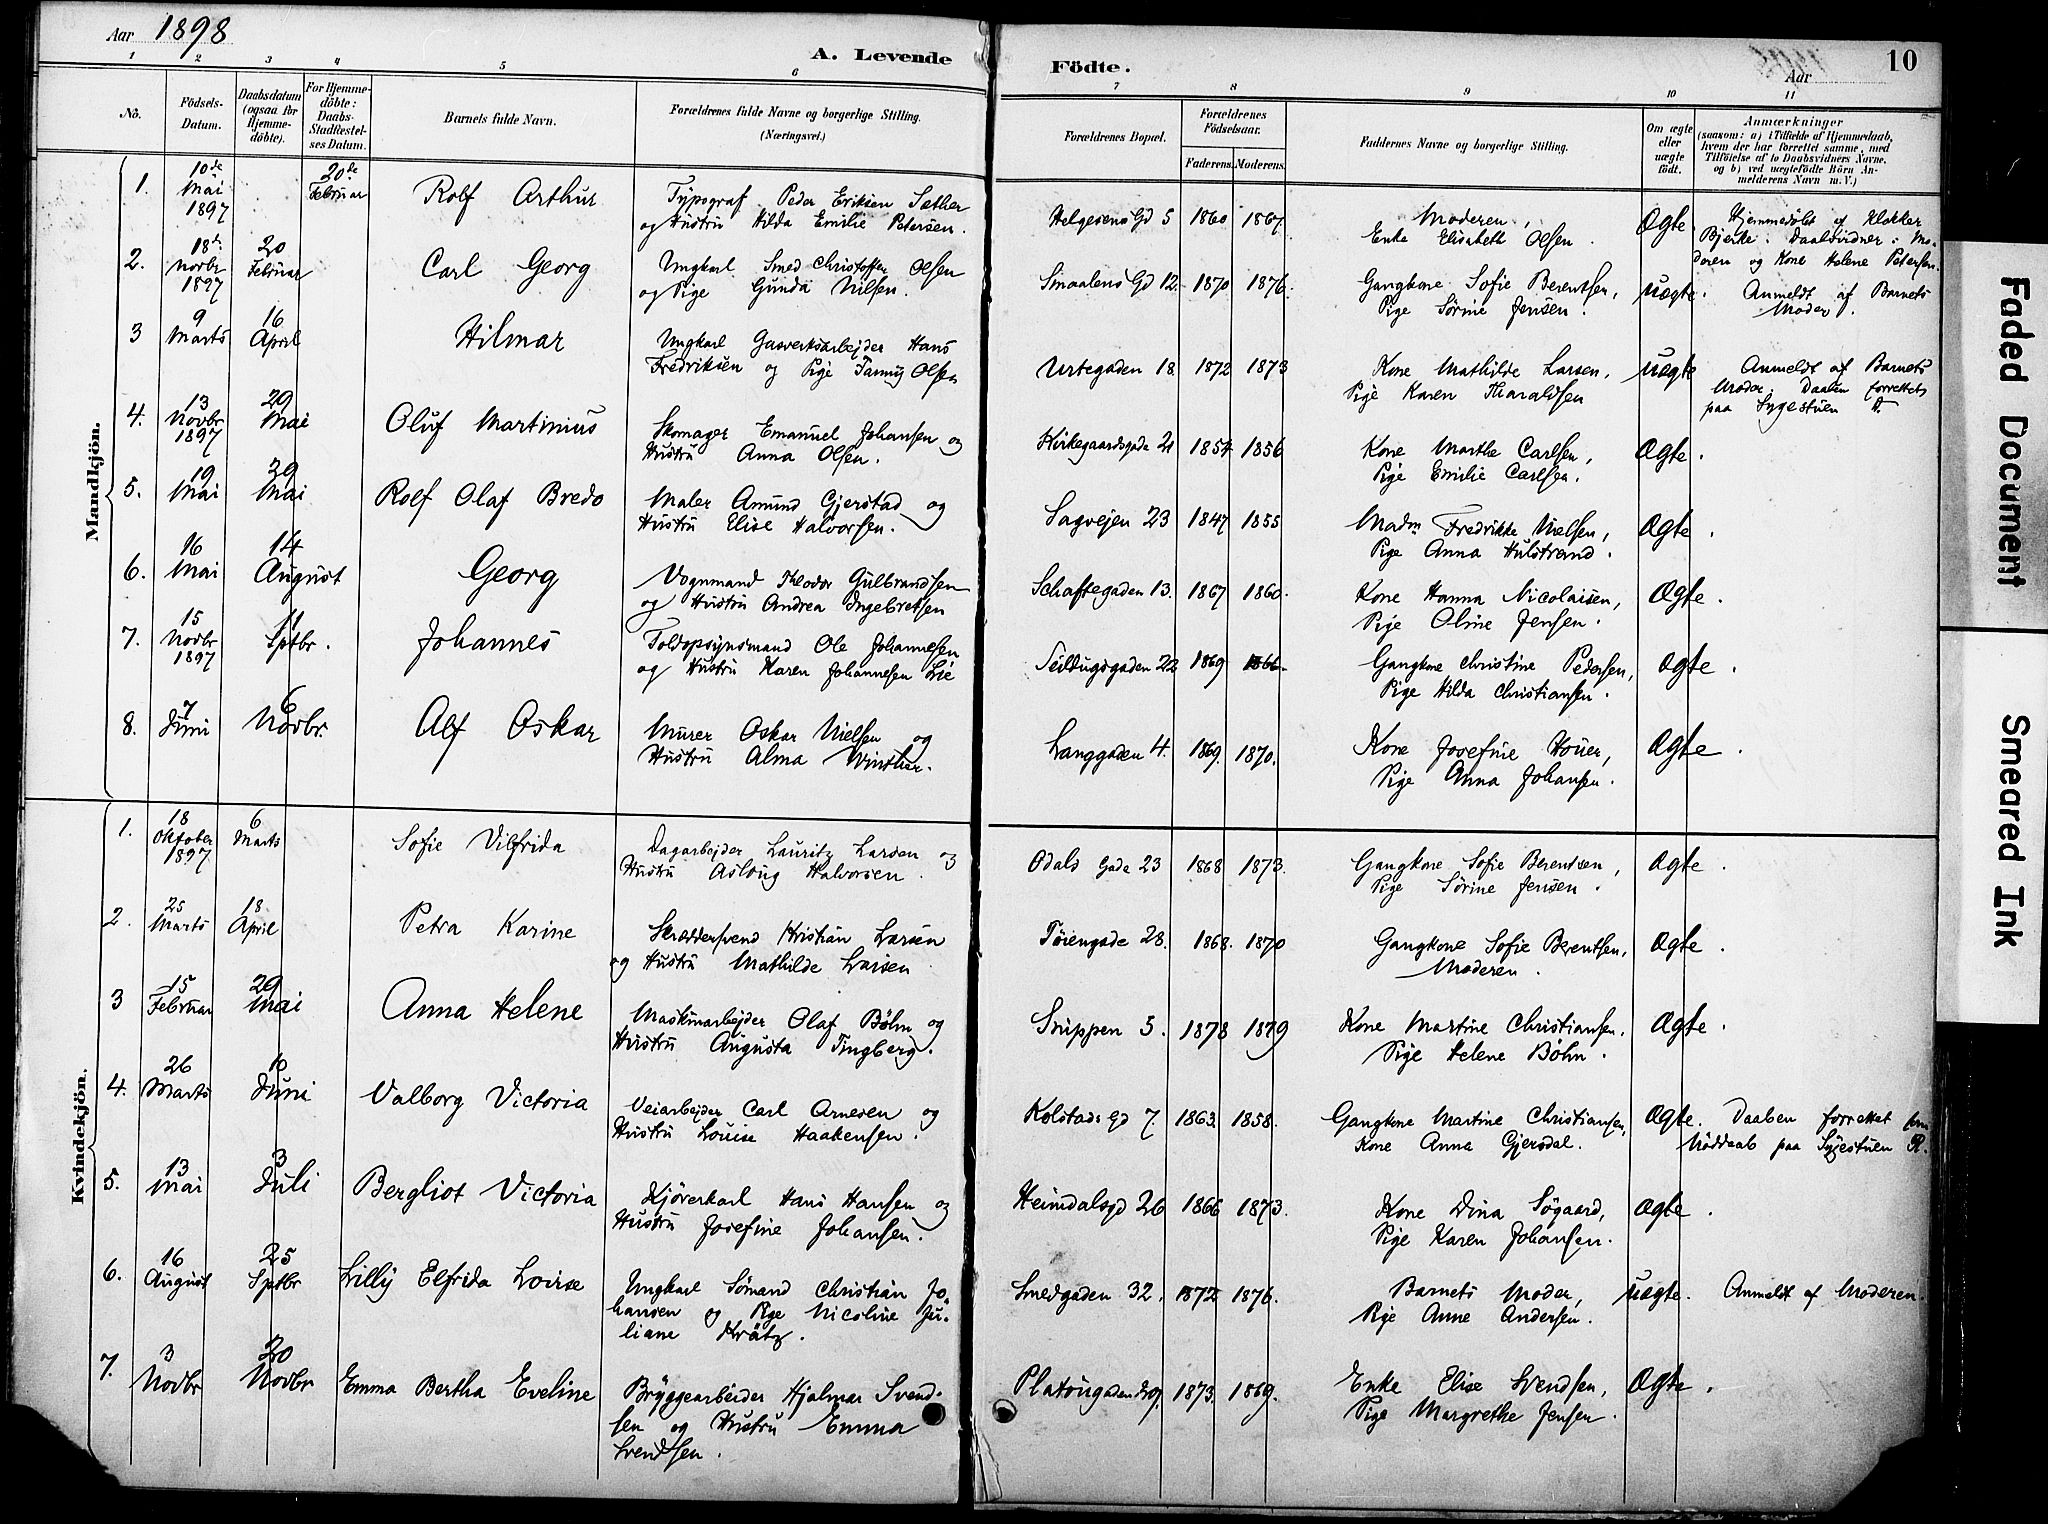 Aar 1898
A. Levende Födte.
Aar
10
1 2 3 4 5 6 7 8 9 10 11
No.
Födsels-Datum.
Daabsdatum (ogsaa for Hjemmedöbte).
For Hjemmedöbte: Daabs-Stadfæstelses Datum.
Barnets fulde Navn.
Forældrenes fulde Navne og borgerlige Stilling. (Næringsvei.)
Forældrenes Bopæl.
Forældrenes Födselsaar.
Faderens. Moderens.
Faddernes Navne og borgerlige Stilling.
Om ægte eller uægte født.
Anmærkninger (saasom: a) i Tilfælde af Hjemmedaab, hvem der har forrettet samme, med Tilføielse af to Daabsvidners Navne, og b) ved uægtefödte Börn Anmelderens Navn m. V.)
Mandkjön.
1. 10de Mai 1897 20de Februar Rolf Arthur Typograf Peder Eriksen Sæther
og Hustru Hilda Emilie Petersen. Helgesens Gd 5 1860 1867. Moderen,
Enke Elisabeth Olsen. Ægte Hjemmedöbt af Klokker
Bjerke. Daabsvidner: Mo-
deren og Kone Helene Petersen.
2. 18de Novbr 1897 20 Februar Carl Georg Ungkarl Smed Christoffer Olsen
og Pige Gunda Nilsen. Smaalens Gd 12. 1870 1876. Gangkone Sofie Berentsen,
Pige Sørine Jensen. Uægte. Anmeldt af Barnets
Moder.
3 9 Marts 16 April Hilmar Ungkarl Gasverksarbejder Hans
Fredriksen og Pige Fanny Olsen Urtegaden 18. 1872 1873 Kone Mathilde Larsen,
Pige Karen Tharaldsen Uægte Anmeldt af Barnets
Moder. Daaben forrettets
paa Sygestuen
4. 13 Novbr 1897 29 Mai Oluf Martinius Skomager Emanuel Johansen og
Hustru Anna Olsen. Kirkegaardsgade 21 1854 1856 Kone Marthe Carlsen,
Pige Emilie Carlsen. Ægte.
5. 19 Mai 29 Mai Rolf Olaf Bredo Maler Amund Gjerstad og
Hustru Elise Halvorsen. Sagvejen 23 1847 1855 Madm Fredrikke Nielsen,
Pige Anna Hulstrand. Ægte.
6. 16 Mai 14 August Georg Vognmand Theodor Gulbrandsen
og Hustru Andrea Ingebretsen Schaftegaden 13. 1867 1860. Kone Hanna Nicolaisen,
Pige Oline Jensen. Ægte.
7. 15 Novbr 1897 11 Sptbr. Johannes Toldopsynsmand Ole Johannesen
og Hustru Karen Johannesen Lie Seildugsgaden 22 1869 1866. Gangkone Christine Pedersen,
Pige Hilda Christiansen. Ægte.
8. 7 Juni 6 Novbr. Alf Oskar Murer Oskar Nielsen og
Hustru Alma Winther. Langgaden 4. 1869. 1870. Kone Josefine Houer,
Pige Anna Johansen. Ægte.
Kvindekjön.
1. 18 Oktober 1897 6 Marts Sofie Vilfrida Dagarbejder Lauritz Larsen og
Hustru Aslaug Halvorsen. Odals Gade 23 1868 1873. Gangkone Sofie Berentsen,
Pige Sørine Jensen. Ægte.
2. 25 Marts 18 April Petra Karine Skræddersvend Kristian Larsen
og Hustru Mathilde Larsen Tøiengade 28. 1868. 1870 Gangkone Sofie Berentsen,
Moderen. Ægte.
3 15 Februar 29 Mai Anna Helene Maskinarbejder Olaf Bøhn og
Hustru Augusta Tingberg. Snippen 5. 1878 1879 Kone Martine Christiansen.
Pige Helene Bøhn. Ægte.
4. 26 Marts 10 Juni Valborg Victoria Veiarbejder Carl Arnesen og
Hustru Louise Haakensen. Kolstads Gd 7. 1863. 1858. Gangkone Martine Christiansen,
Kone Anna Gjersdal. Ægte. Daaben forrettet som
Nöddaab paa Sygestuen R.
5. 13 Mai 3 Juli Bergliot Victoria Kjørerkarl Hans Hansen og
Hustru Josefine Johansen. Heimdalsgd 26 1866 1873. Kone Dina Søgaard,
Pige Karen Johansen. Ægte.
6. 16 August 25 Sptbr Lilly Elfrida Lovise Ungkarl Sømand Christian Jo-
hansen og Pige Nicoline Ju-
liane Krätz. Smedgaden 32. 1872 1876. Barnets Moder,
Pige Anne Andersen. Uægte. Anmeldt af Moderen.
7. 3 Novbr 20 Novbr Emma Bertha Eveline Bryggearbeider Hjalmar Svend-
sen og Hustru Emma
Svendsen. Platougaden 1873. 1869. Enke Elise Svendsen,
Pige Margrethe Jensen. Ægte.
Faded Document
Smeared Ink